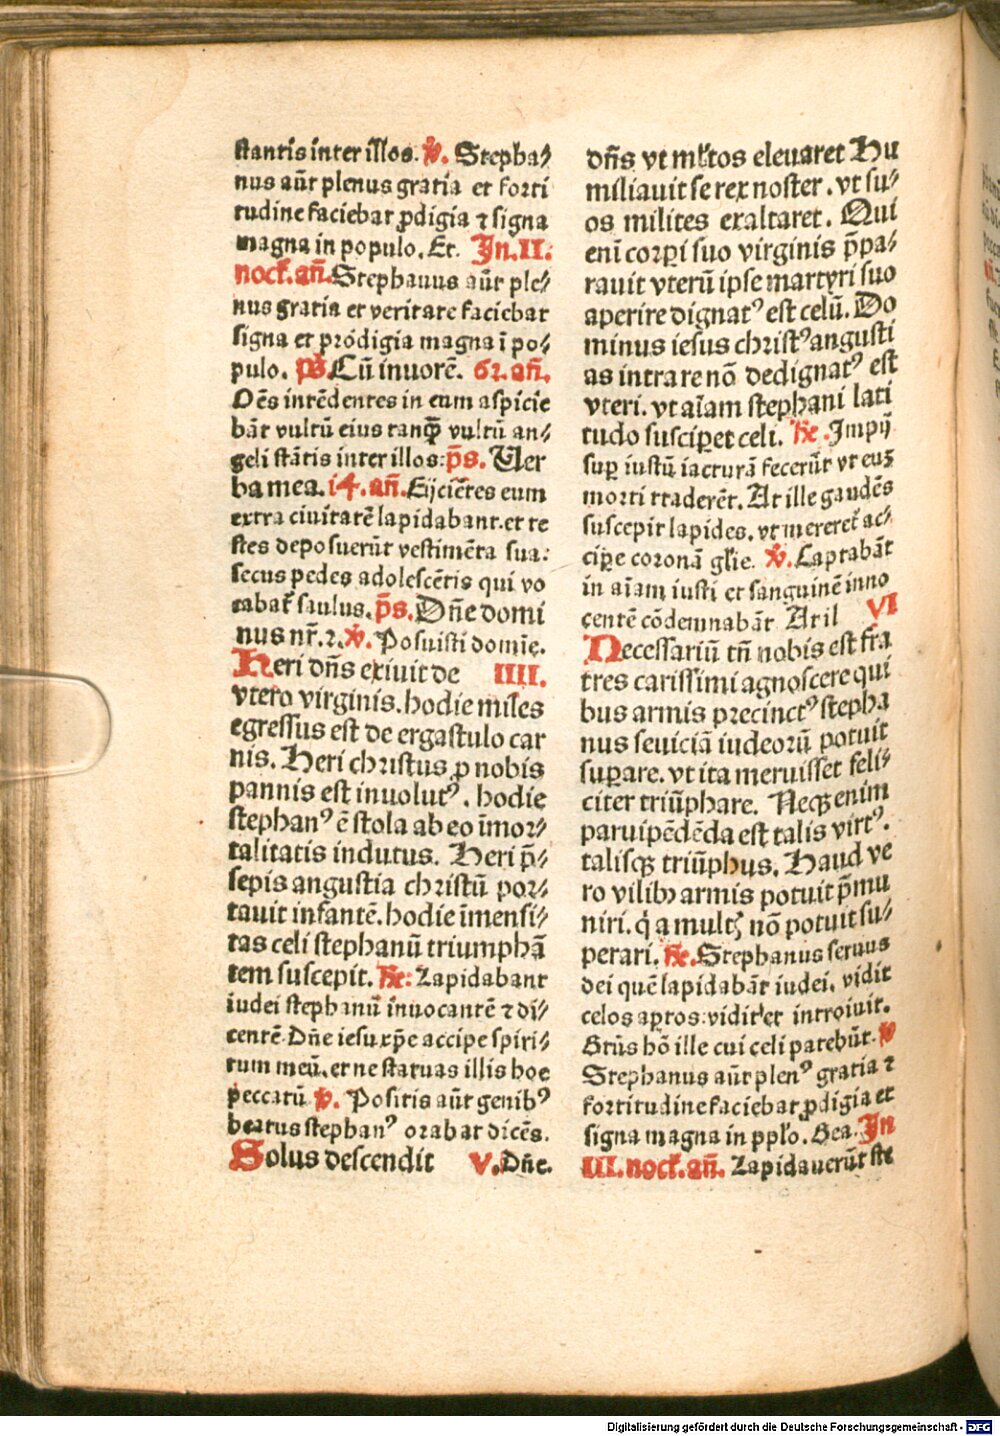 stantis inter illos. ℣. Stepha⸗
nus aūt plenus gratia et forti
tudine faciebat ꝓdigia ⁊ signa
magna in populo. Et. In. II.
noct̄. an̄. Stephanus aūt ple⸗
nus gratia et veritate faciebat
signa et prodigia magna ī po⸗
pulo. p̄s. Cū inuorē. 62. an̄.
Oēs intēdentes in eum aspicie
bāt vultū eius tanq̄ vultū an⸗
geli stātis inter illos: p̄s. Uer
ba mea. i4. an̄. Eijciētes eum
extra ciuitatē lapidabant. et te
stes deposuerūt vestimēta sua:
secus pedes adolescētis qui vo
cabat̄ saulus. p̄s. Dn̄e domi
nus nr̄. 2. ℣. Posuisti domīe.
Heri dn̄s exiuit de IIII.
vtero virginis. hodie miles
egressus est de ergastulo car
nis. Heri christus ꝓ nobis
pannis est inuolutꝰ. hodie
stephanꝰ ē stola ab eo īmor⸗
talitatis indutus. Heri p̄⸗
sepis angustia christū por⸗
tauit infantē. hodie īmensi⸗
tas celi stephanū triumphā
tem suscepit. ℟: Lapidabant
iudei stephanū inuocantē ⁊ di⸗
centē. Dn̄e iesu xp̄e accipe spiri⸗
tum meū. et ne statuas illis hoc
peccatū ℣. Positis aūt genibꝰ
beatus stephanꝰ orabat dicēs.
Solus descendit V. Dn̄e.
dn̄s vt ml̄tos eleuaret Hu
miliauit se rex noster. vt su⸗
os milites exaltaret. Qui
enī corꝑi suo virginis p̄pa⸗
rauit vterū ipse martyri suo
aperire dignatꝰ est celū. Do
minus iesus christꝰ angusti
as intrare nō dedignatꝰ est
vteri. vt aīam stephani lati
tudo susciꝑet celi. ℟. Impij
suꝑ iustū iacturā fecerūt vt euꝫ
morti traderēt. At ille gaudēs
suscepit lapides. vt mereret̄ ac⸗
ciꝑe coronā gl̄ie. ℣. Captabāt
in aīam iusti et sanguinē inno
centē cōdemnabāt At il VI
Necessariū tn̄ nobis est fra
tres carissimi agnoscere qui
bus armis precinctꝰ stepha
nus seuiciā iudeorū potuit
suꝑare. vt ita meruisset feli⸗
citer triūphare. Neqꝫ enim
paruipēdēda est talis virtꝰ.
talisqꝫ triūphus. Haud ve
ro vilibꝫ armis potuit p̄mu
niri. q̇ a multꝭ nō potuit su⸗
perari. ℟. Stephanus seruus
dei quē lapidabāt iudei. vidit
celos aꝑtos: vidit et introiuit.
Btūs hō ille cui celi patebūt. ℣
Stephanus aūt plenꝰ gratia ⁊
fortitudine faciebat ꝓdigia et
signa magna in ppl̄o. Bea. In
III. noct̄. an̄. Lapidauerūt ste
Digitalisierung gefördert durch die Deutsche Forschungsgemeinschaft - DFG